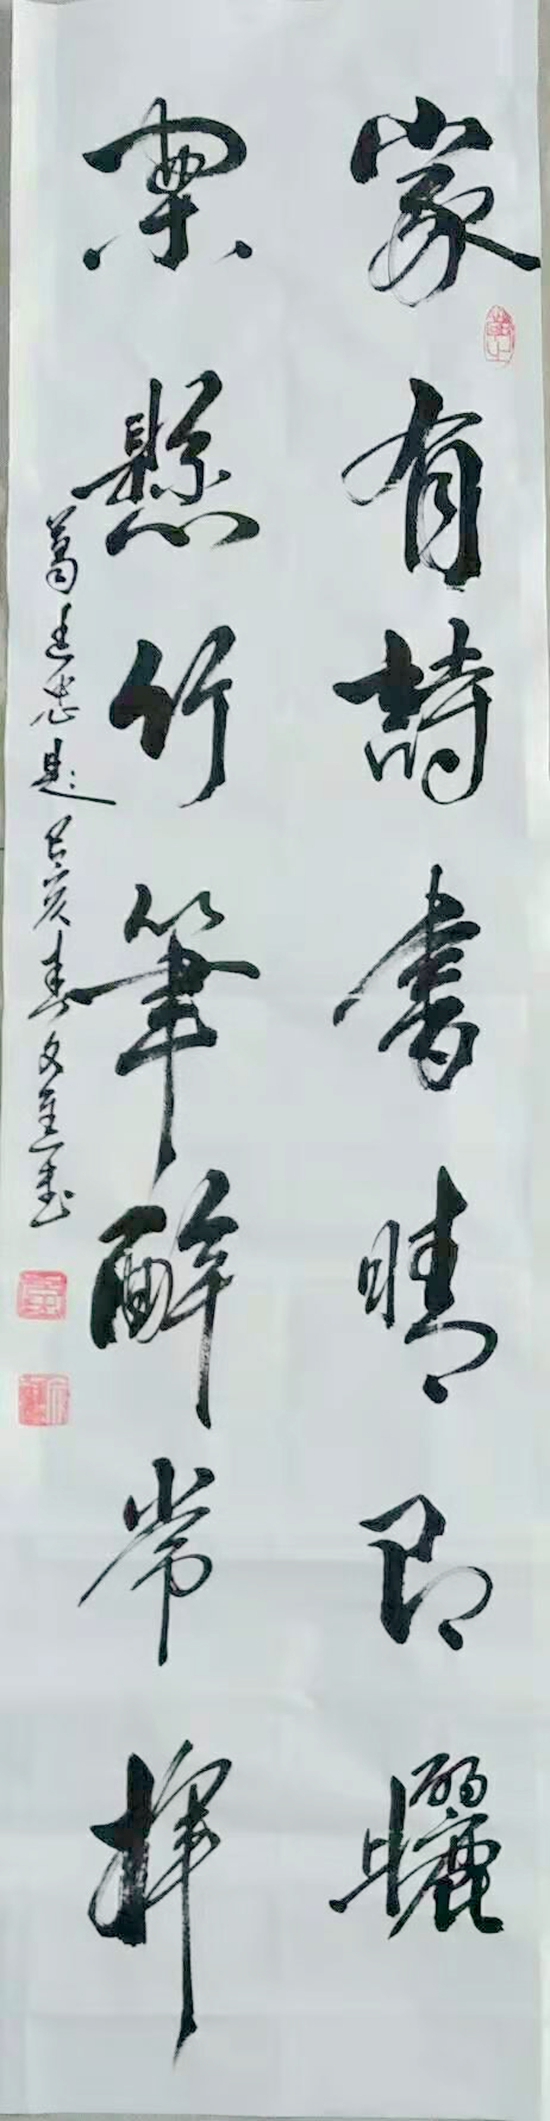 家有詩書晴即曬
案懸竹筆醉常揮
葛建忠題己亥春文進書